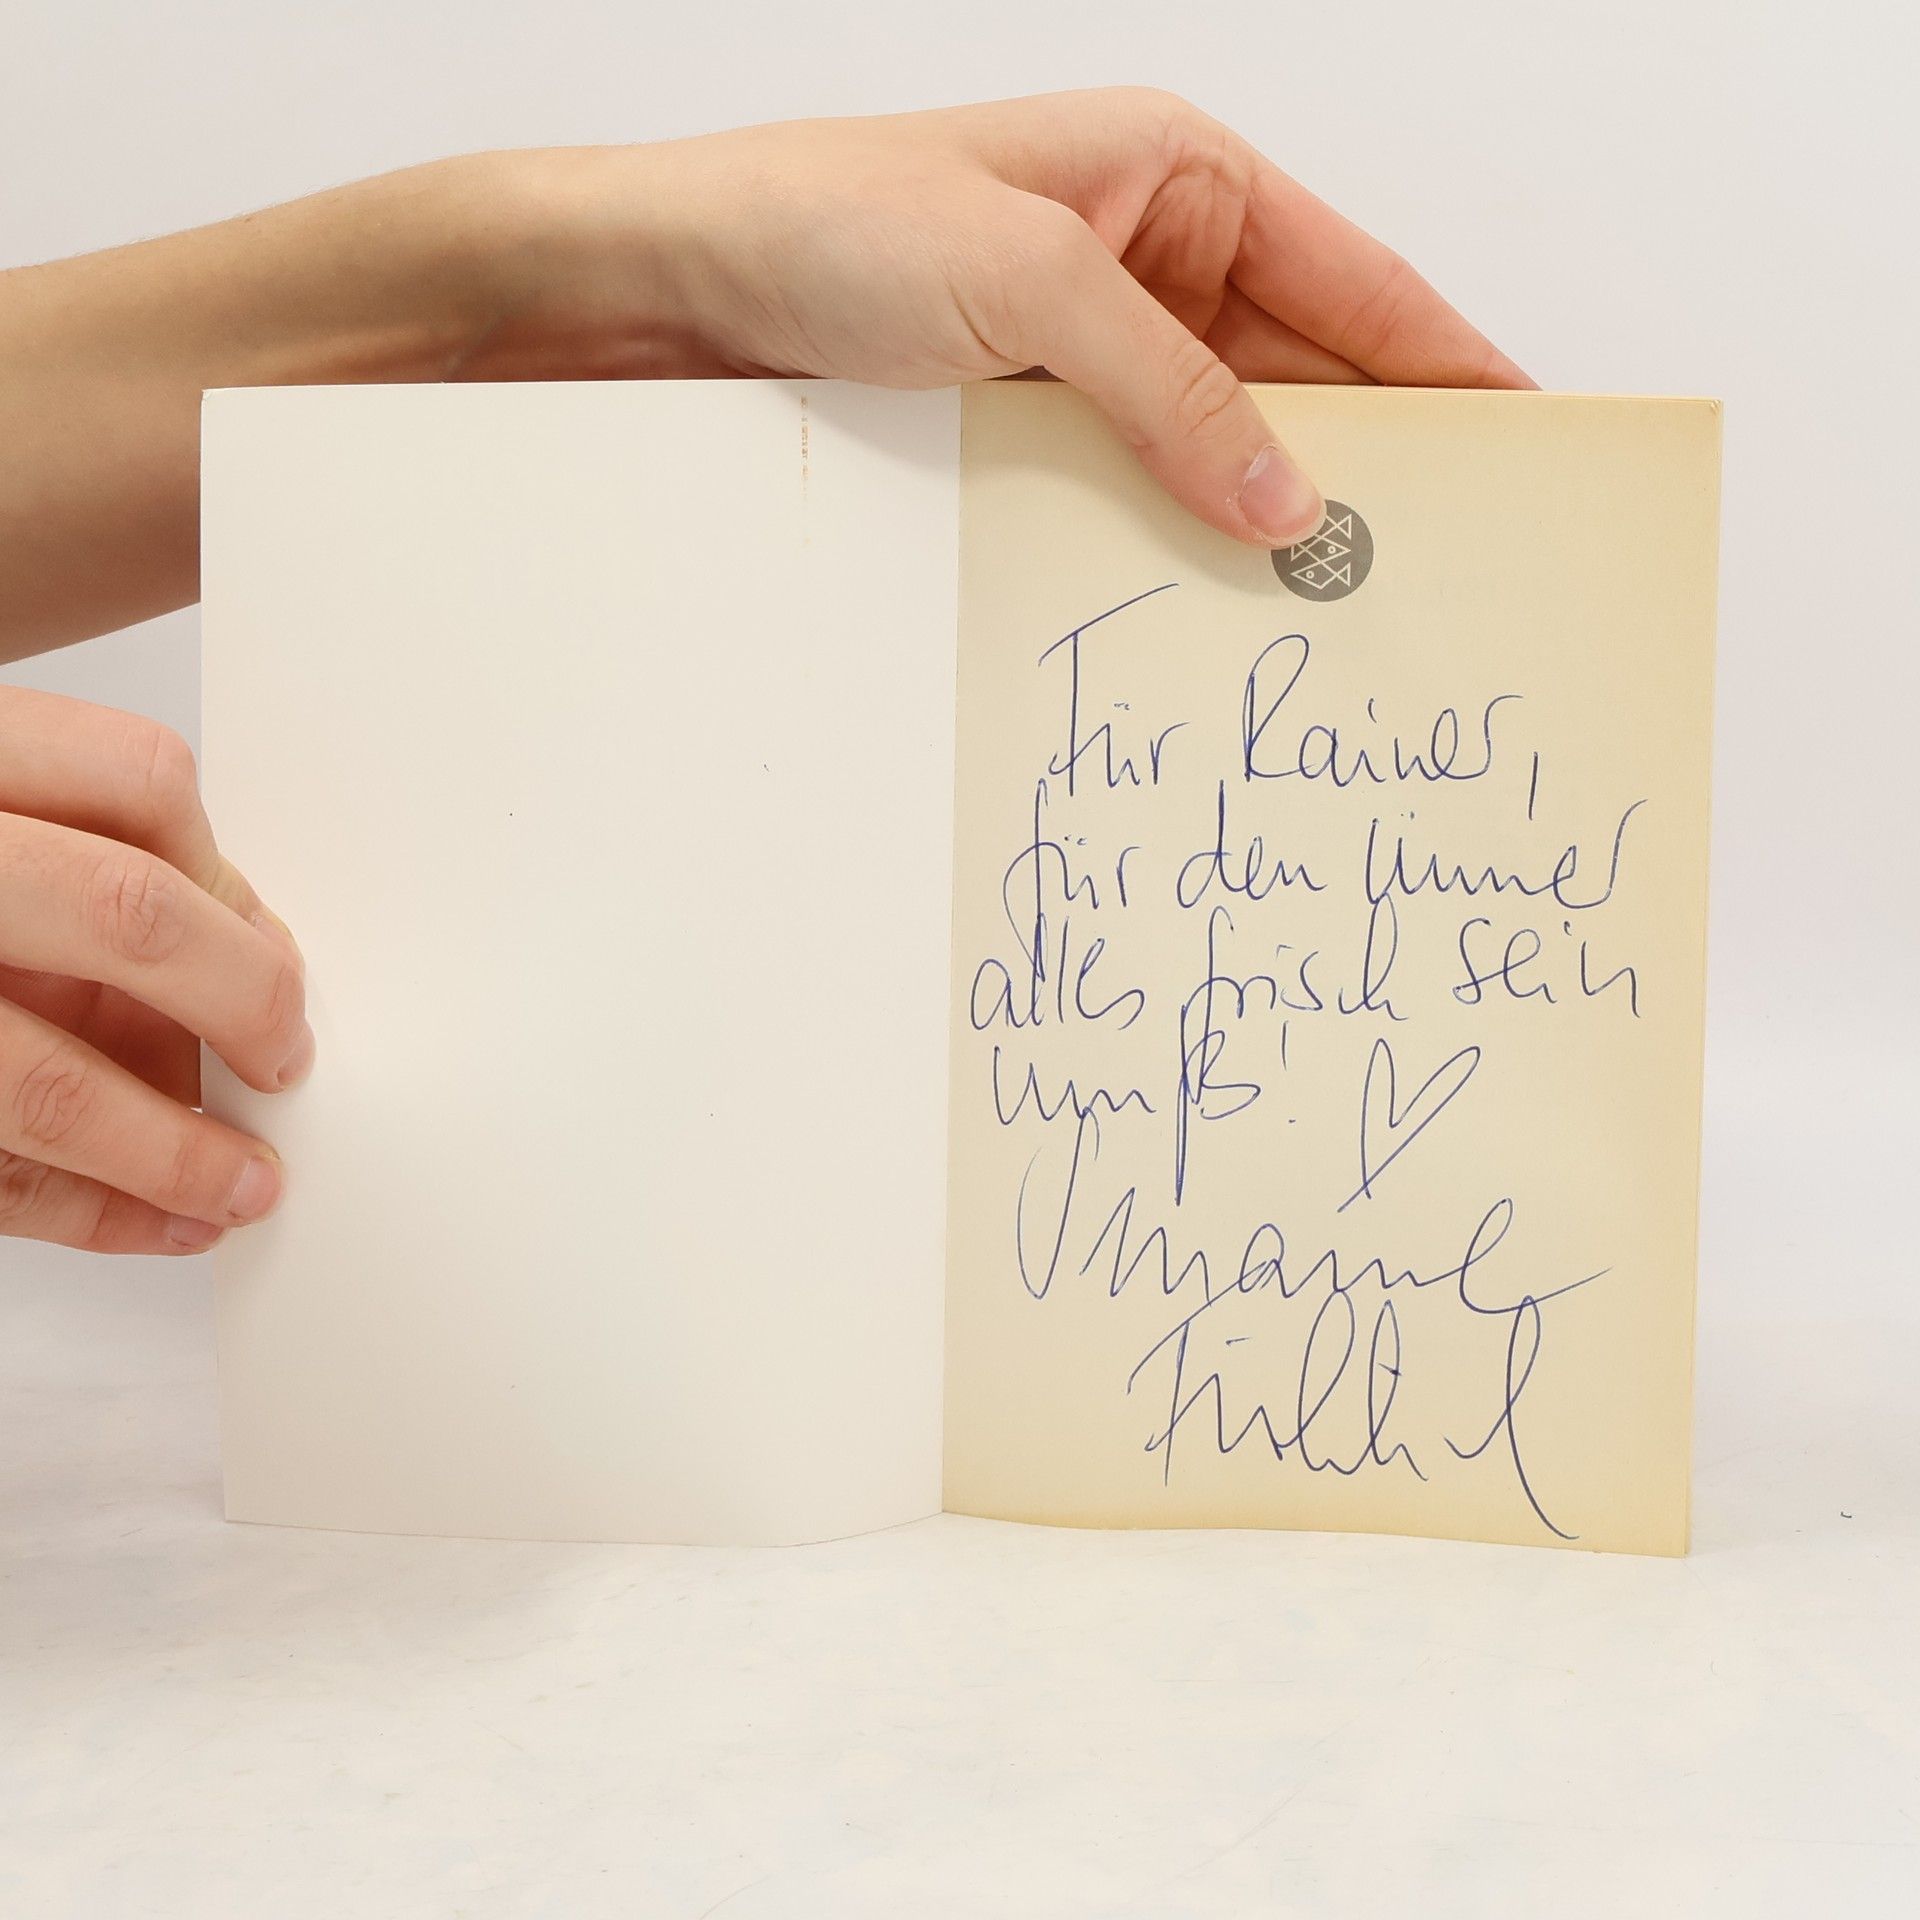 Für Rainer,
für den immer
alles frisch sein
muß! ♡